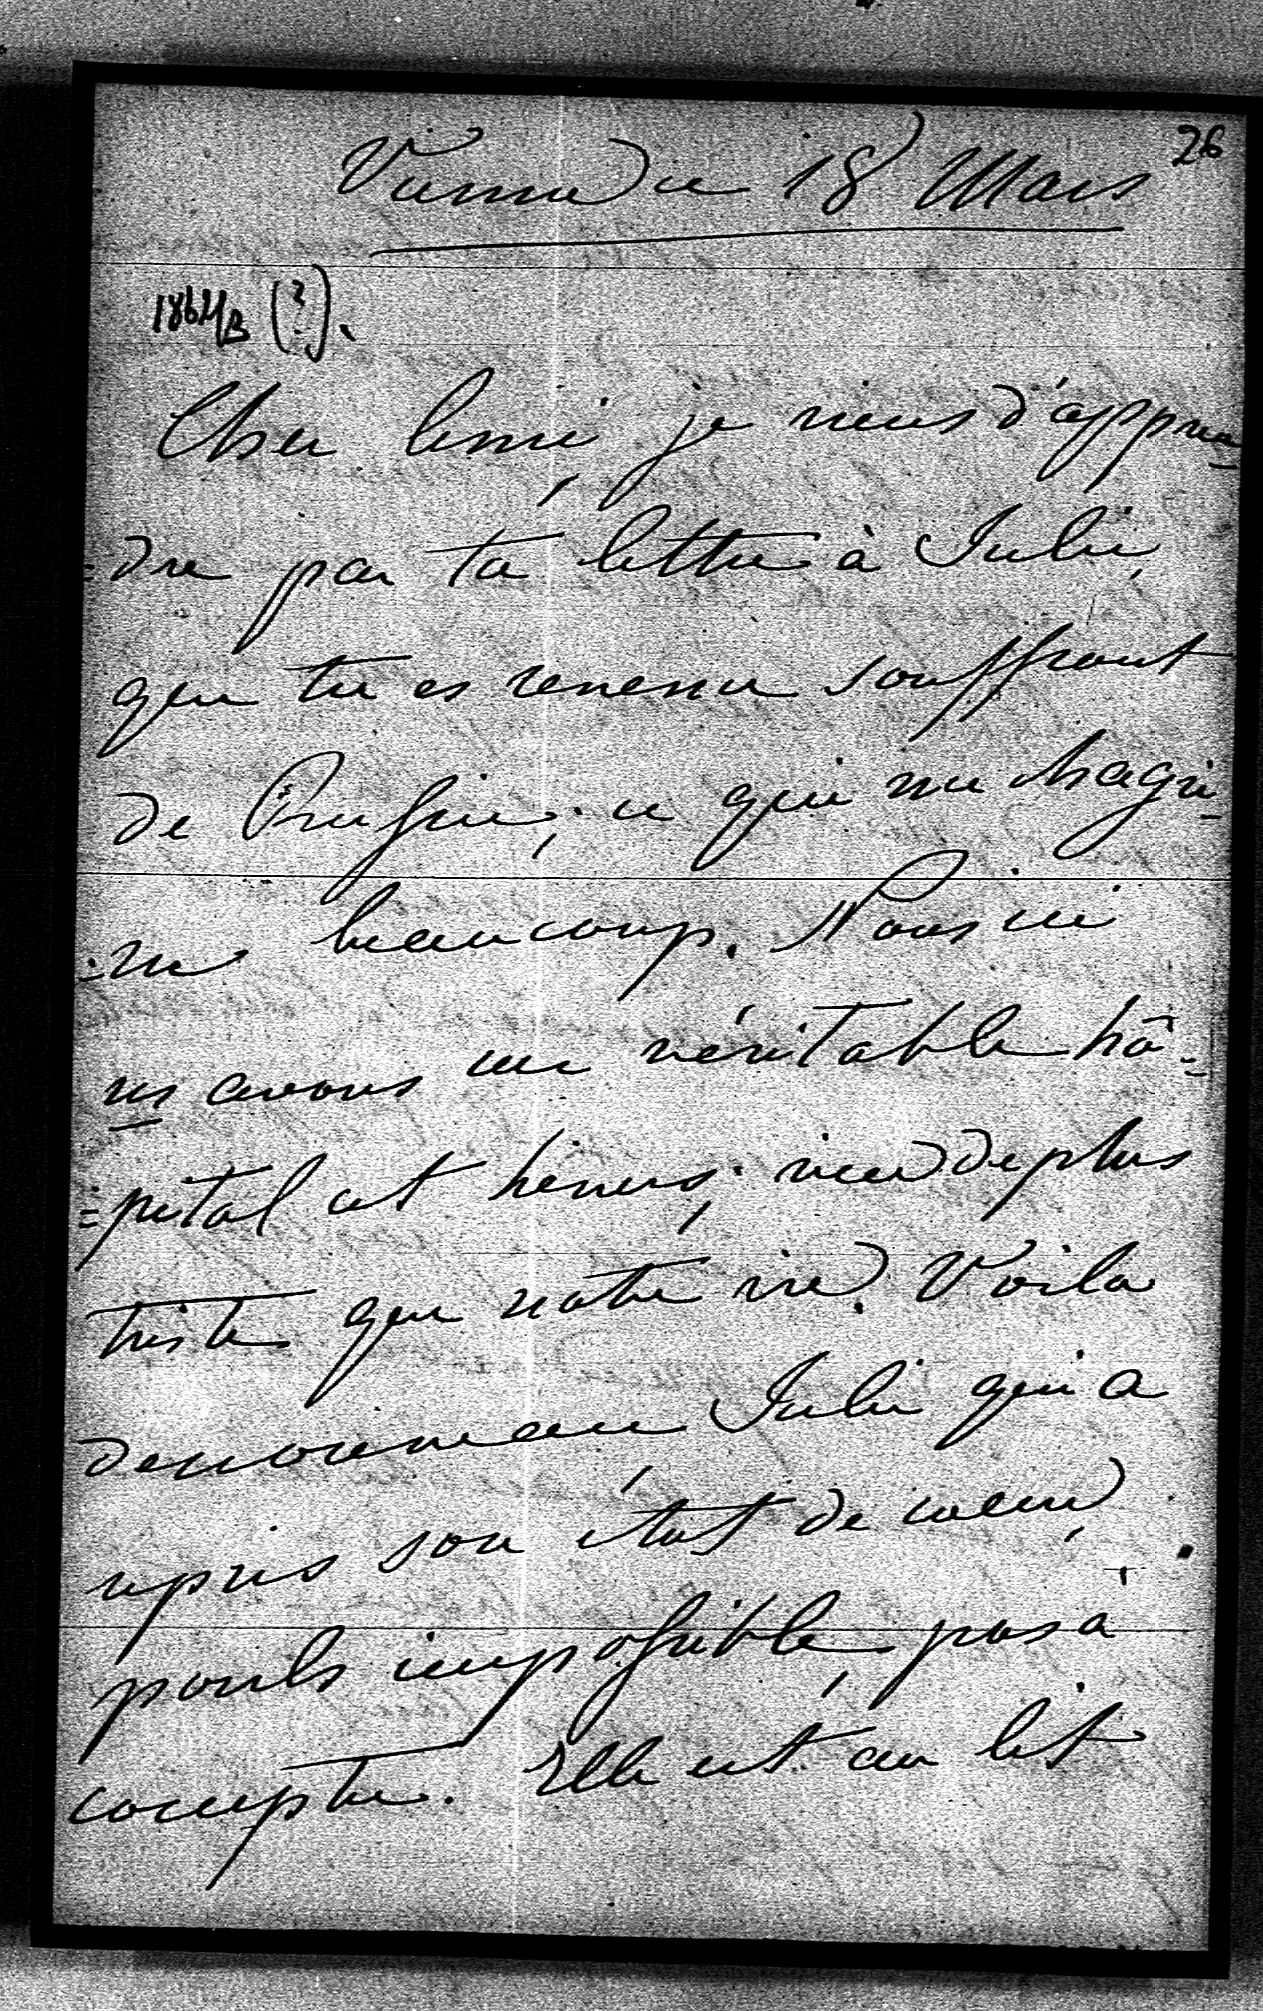 26
Vienne ce 18 Mars
(?).
Cher ami, je viens d'appren-
=dre par ta lettre à Julie,
que tu es revenu souffrant
de Prussie; ce qui me chagri-
=ne beaucoup. Nous ici
ns avons un véritable hô-
=pital et hèners; rien de plus
triste que notre vie. Voila
denouveau Julie qui a
repris son état de coeur,
pouls impossible, pas à
compter. Elle est au lit